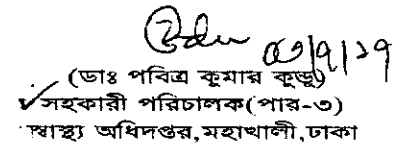 ০৩/৭/১৭
(ডাঃ পবিত্র কুমার কুন্ডু)
সহকারী পরিচালক(পার-৩)
স্বাস্থ্য অধিদপ্তর,মহাখালী,ঢাকা